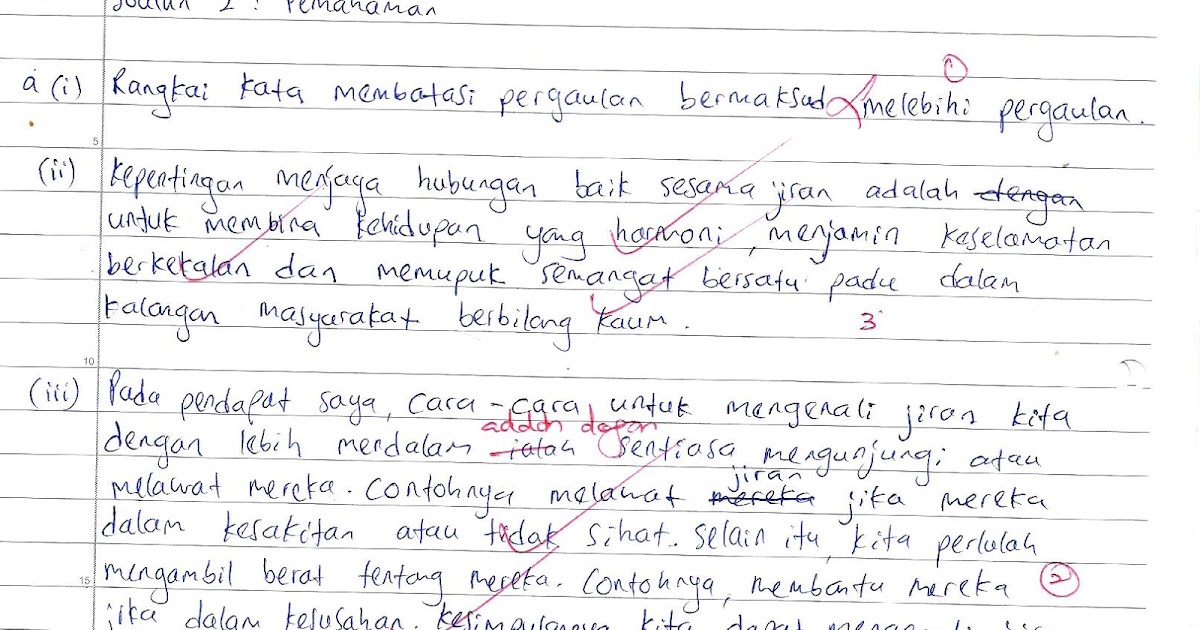 Soalan 2 : Pemahaman
a (i) Rangkai kata membatasi pergaulan bermaksud melebihi pergaulan.
1
5
(ii) Kepentingan menjaga hubungan baik sesama jiran adalah dengan
untuk membina kehidupan yang harmoni, menjamin keselamatan
berkekalan dan memupuk semangat bersatu padu dalam
kalangan masyarakat berbilang kaum. 3
10
(iii) Pada pendapat saya, cara-cara untuk mengenali jiran kita
adalah dapan
dengan lebih mendalam ialah sentiasa mengunjungi atau
jiran
melawat mereka. Contohnya melawat mereka jika mereka
dalam kesakitan atau tidak sihat. Selain itu, kita perlulah
15 mengambil berat tentang mereka. Contohnya, membantu mereka 2
jika dalam kesusahan. Kesimpulannya kita dapat